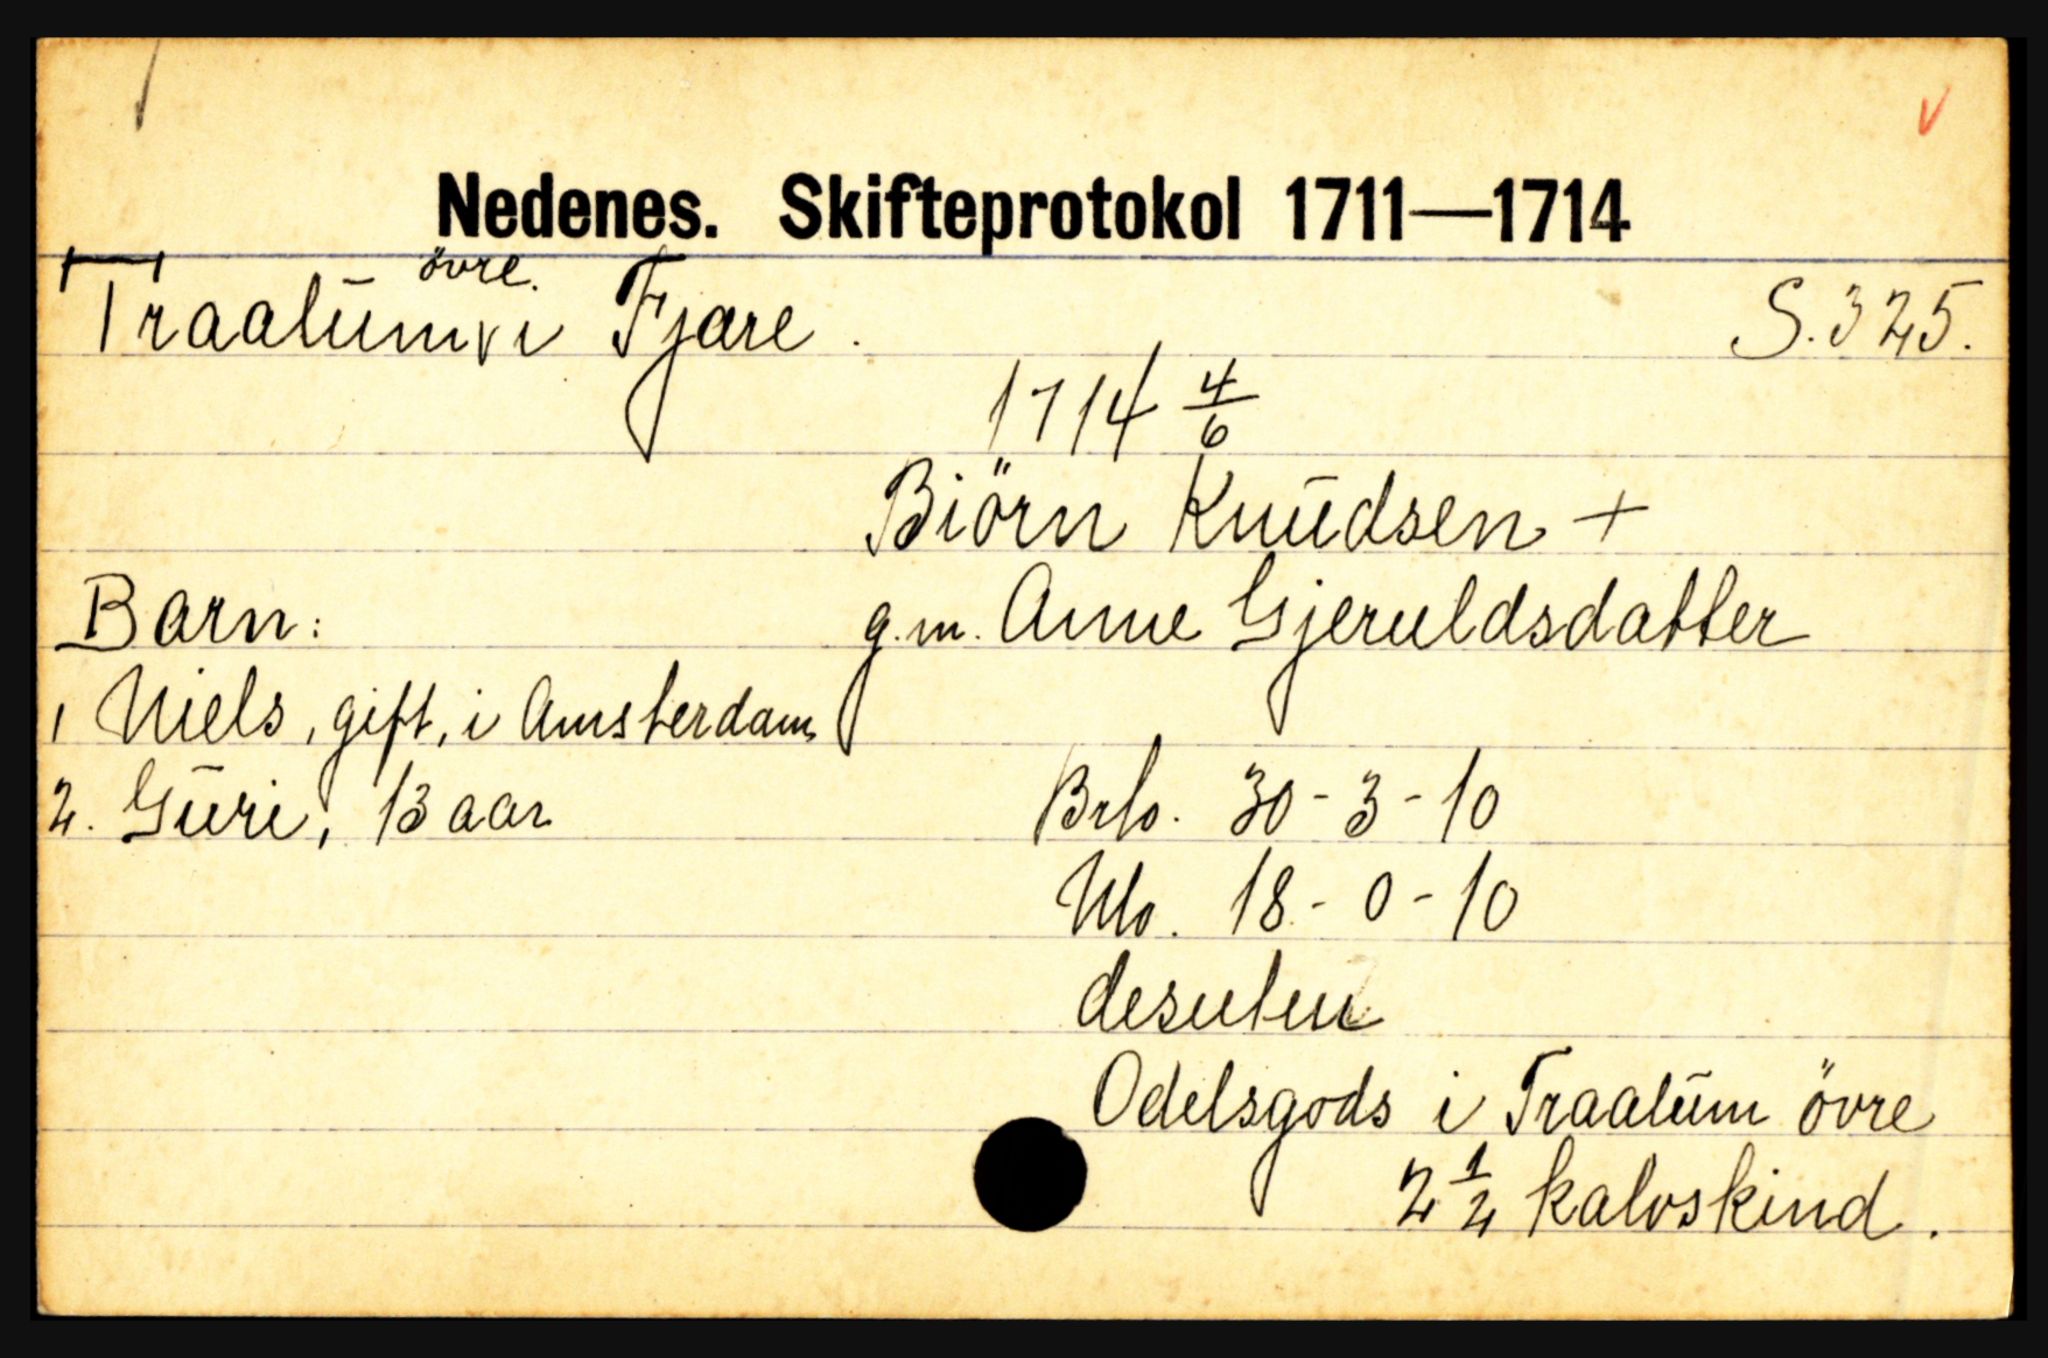 Nedenes. Skifteprotokol 1711—1714
Traalum övre. i Fjære. S. 325.
1714 4/6
Biörn Knudsen +
Barn: g.m. Anne Gjeruldsdatter
1 Niels, gift, i Amsterdam
2. Guri, 13 aar Brlo. 30 - 3 - 10
Nlo. 18 - 0 - 10
desuten
Odelsgods i Traalum övre
2 1/2 kalvskind.